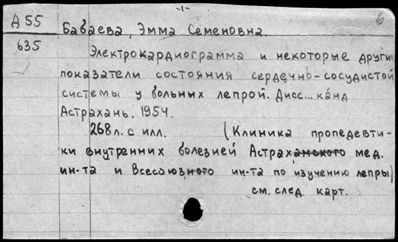 -1-
6
Д 55
635
Бабаева, Эмма Семеновна.
Электрокардиограмма и некоторые други
показатели состояния сердечно-сосудистой
системы у больных лепрой. Дисс... канд
Астрахань, 1954.
268 л. с илл. (Клиника пропедевти-
ки внутренних болезней Астраханского мед.
ин-та и Всесоюзного ин-та по изучению лепры)
см. след. карт.